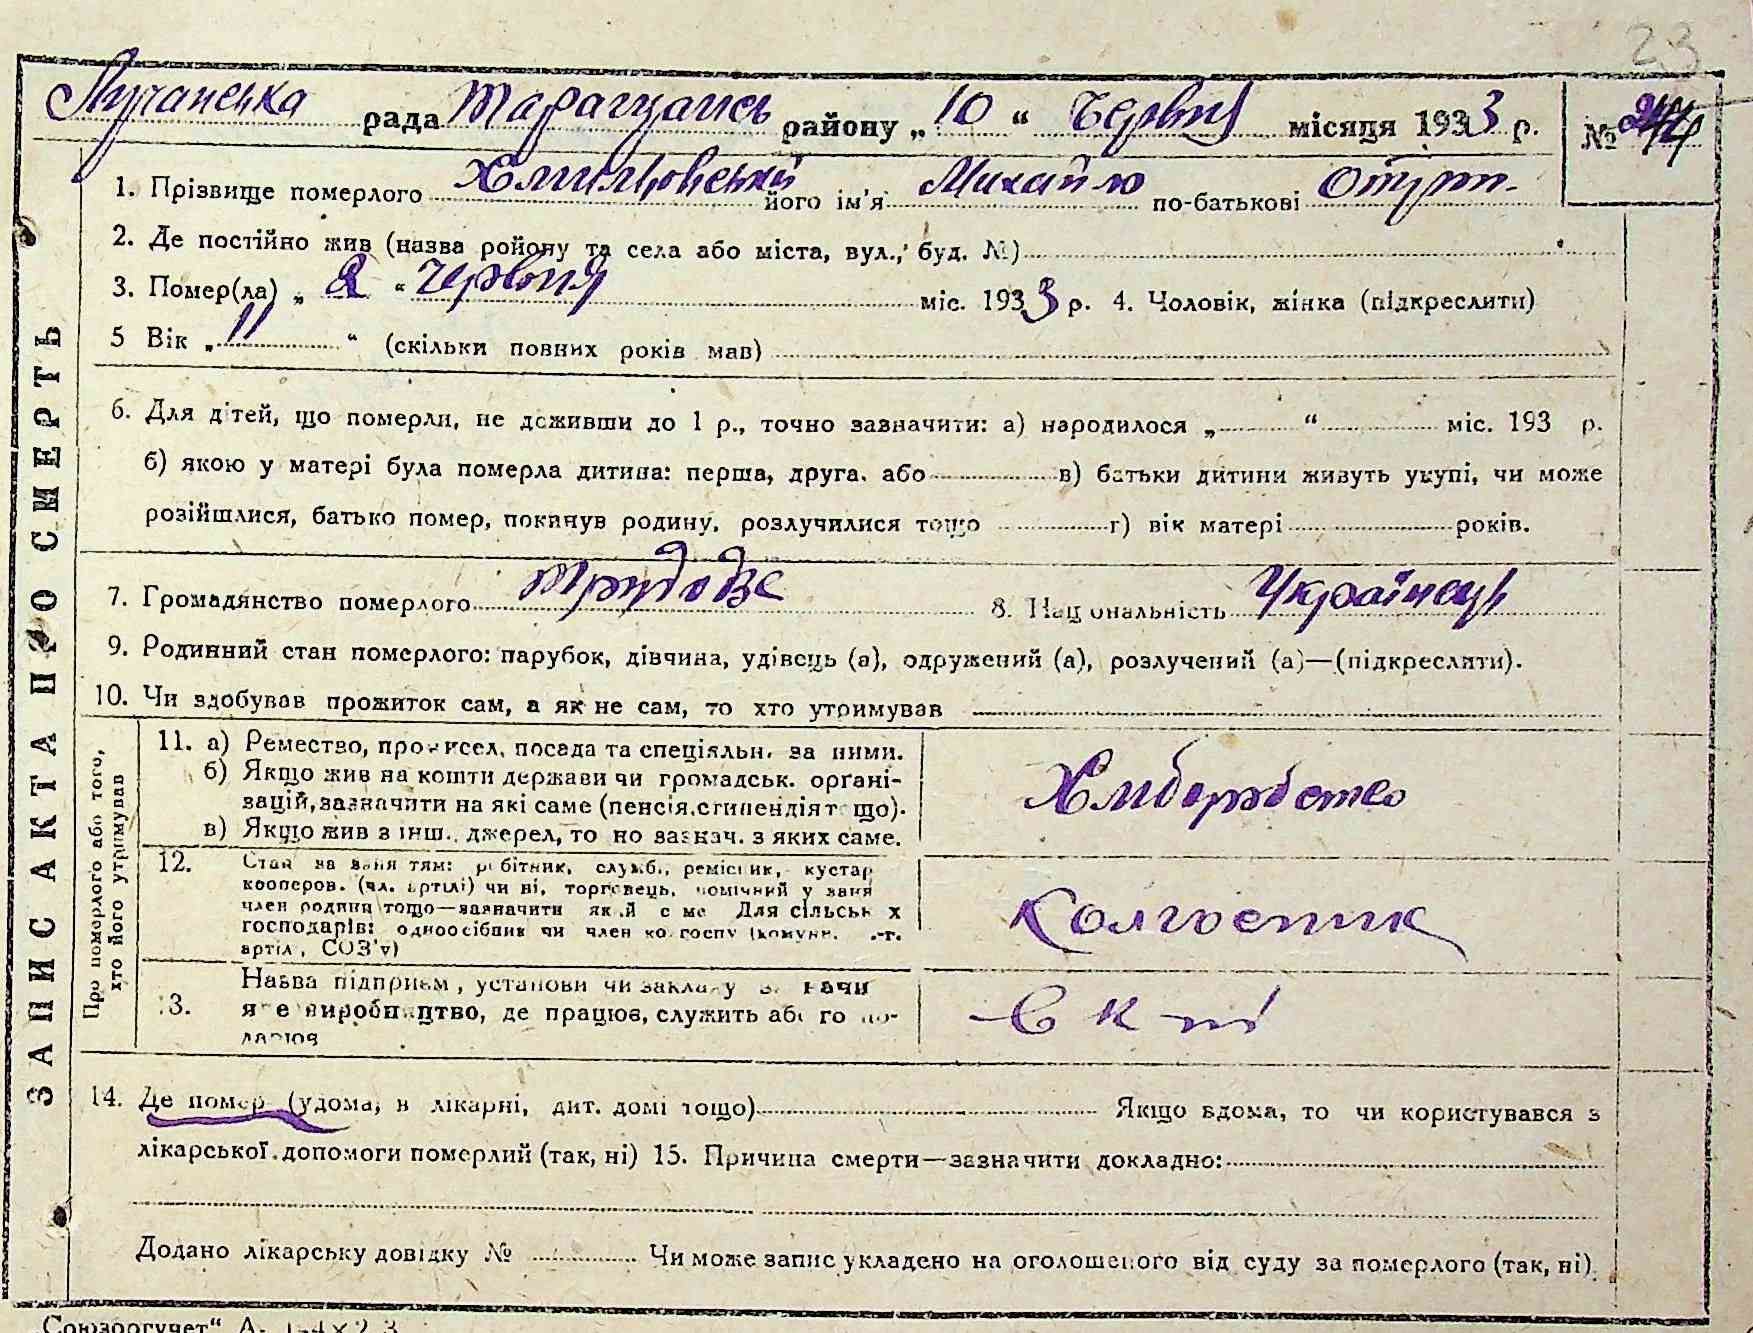 23
Лучанська рада Таращансь району „10“ Червня місяця 1933 р. № 44
1. Прізвище померлого його ім'я Михайло по-батькові
2. Де постійно жив (назва ройону та села або міста, вул., буд. №)
3. Помер(ла) „ “ червня міс. 1933 р. 4. Чоловік, жінка (підкреслити)
5 Вік „ 11 “ (скільки повних років мав)
6. Для дітей, що померли, не доживши до 1 р., точно зазначити: а) народилося „ “ міс. 193 р.
б) якою у матері була померла дитина: перша, друга. або в) батьки дитини живуть укупі, чи може
розійшлися, батько помер, покинув родину, розлучилися тощо г) вік матері років.
7. Громадянство померлого 8. Нац ональність Українець
9. Родинний стан померлого: парубок, дівчина, удівець (а), одружений (а), розлучений (а)—(підкреслити).
10. Чи здобував прожиток сам, а як не сам, то хто утримував
ЗАПИС АКТА ПРО СМЕРТЬ
Про померлого або того,
хто його утримував
11. а) Ремество, промисел, посада та спеціяльн. за ними.
б) Якщо жив на кошти держави чи громадськ. органі-
зацій, зазначити на які саме (пенсія, стипендія т що).
в) Якщо жив з інш. джерел, то но зазнач. з яких саме.
Хліборобство
12. Стан за заня тям: робітник, служб., ремісник, кустар
кооперов. (чл. артілі) чи ні, торговець, помічний у занят
член родини тощо—зазначити як й с ме Для сільськ х
господарів: одноосібник чи член ко госпу (комуни, .-г.
артіл, СОЗ'у)
Колгоспник
13. Назва підприєм, установи чи закладу
я е виробництво, де працює, служить аб го по-
14. Де помер (удома, в лікарні, дит. домі тощо) Якщо вдома, то чи користувався з
лікарської допомоги померлий (так, ні) 15. Причина смерти—зазначити докладно:
Додано лікарську довідку № Чи може запис укладено на оголошеного від суду за померлого (так, ні)
„Союзоргучет“ А-